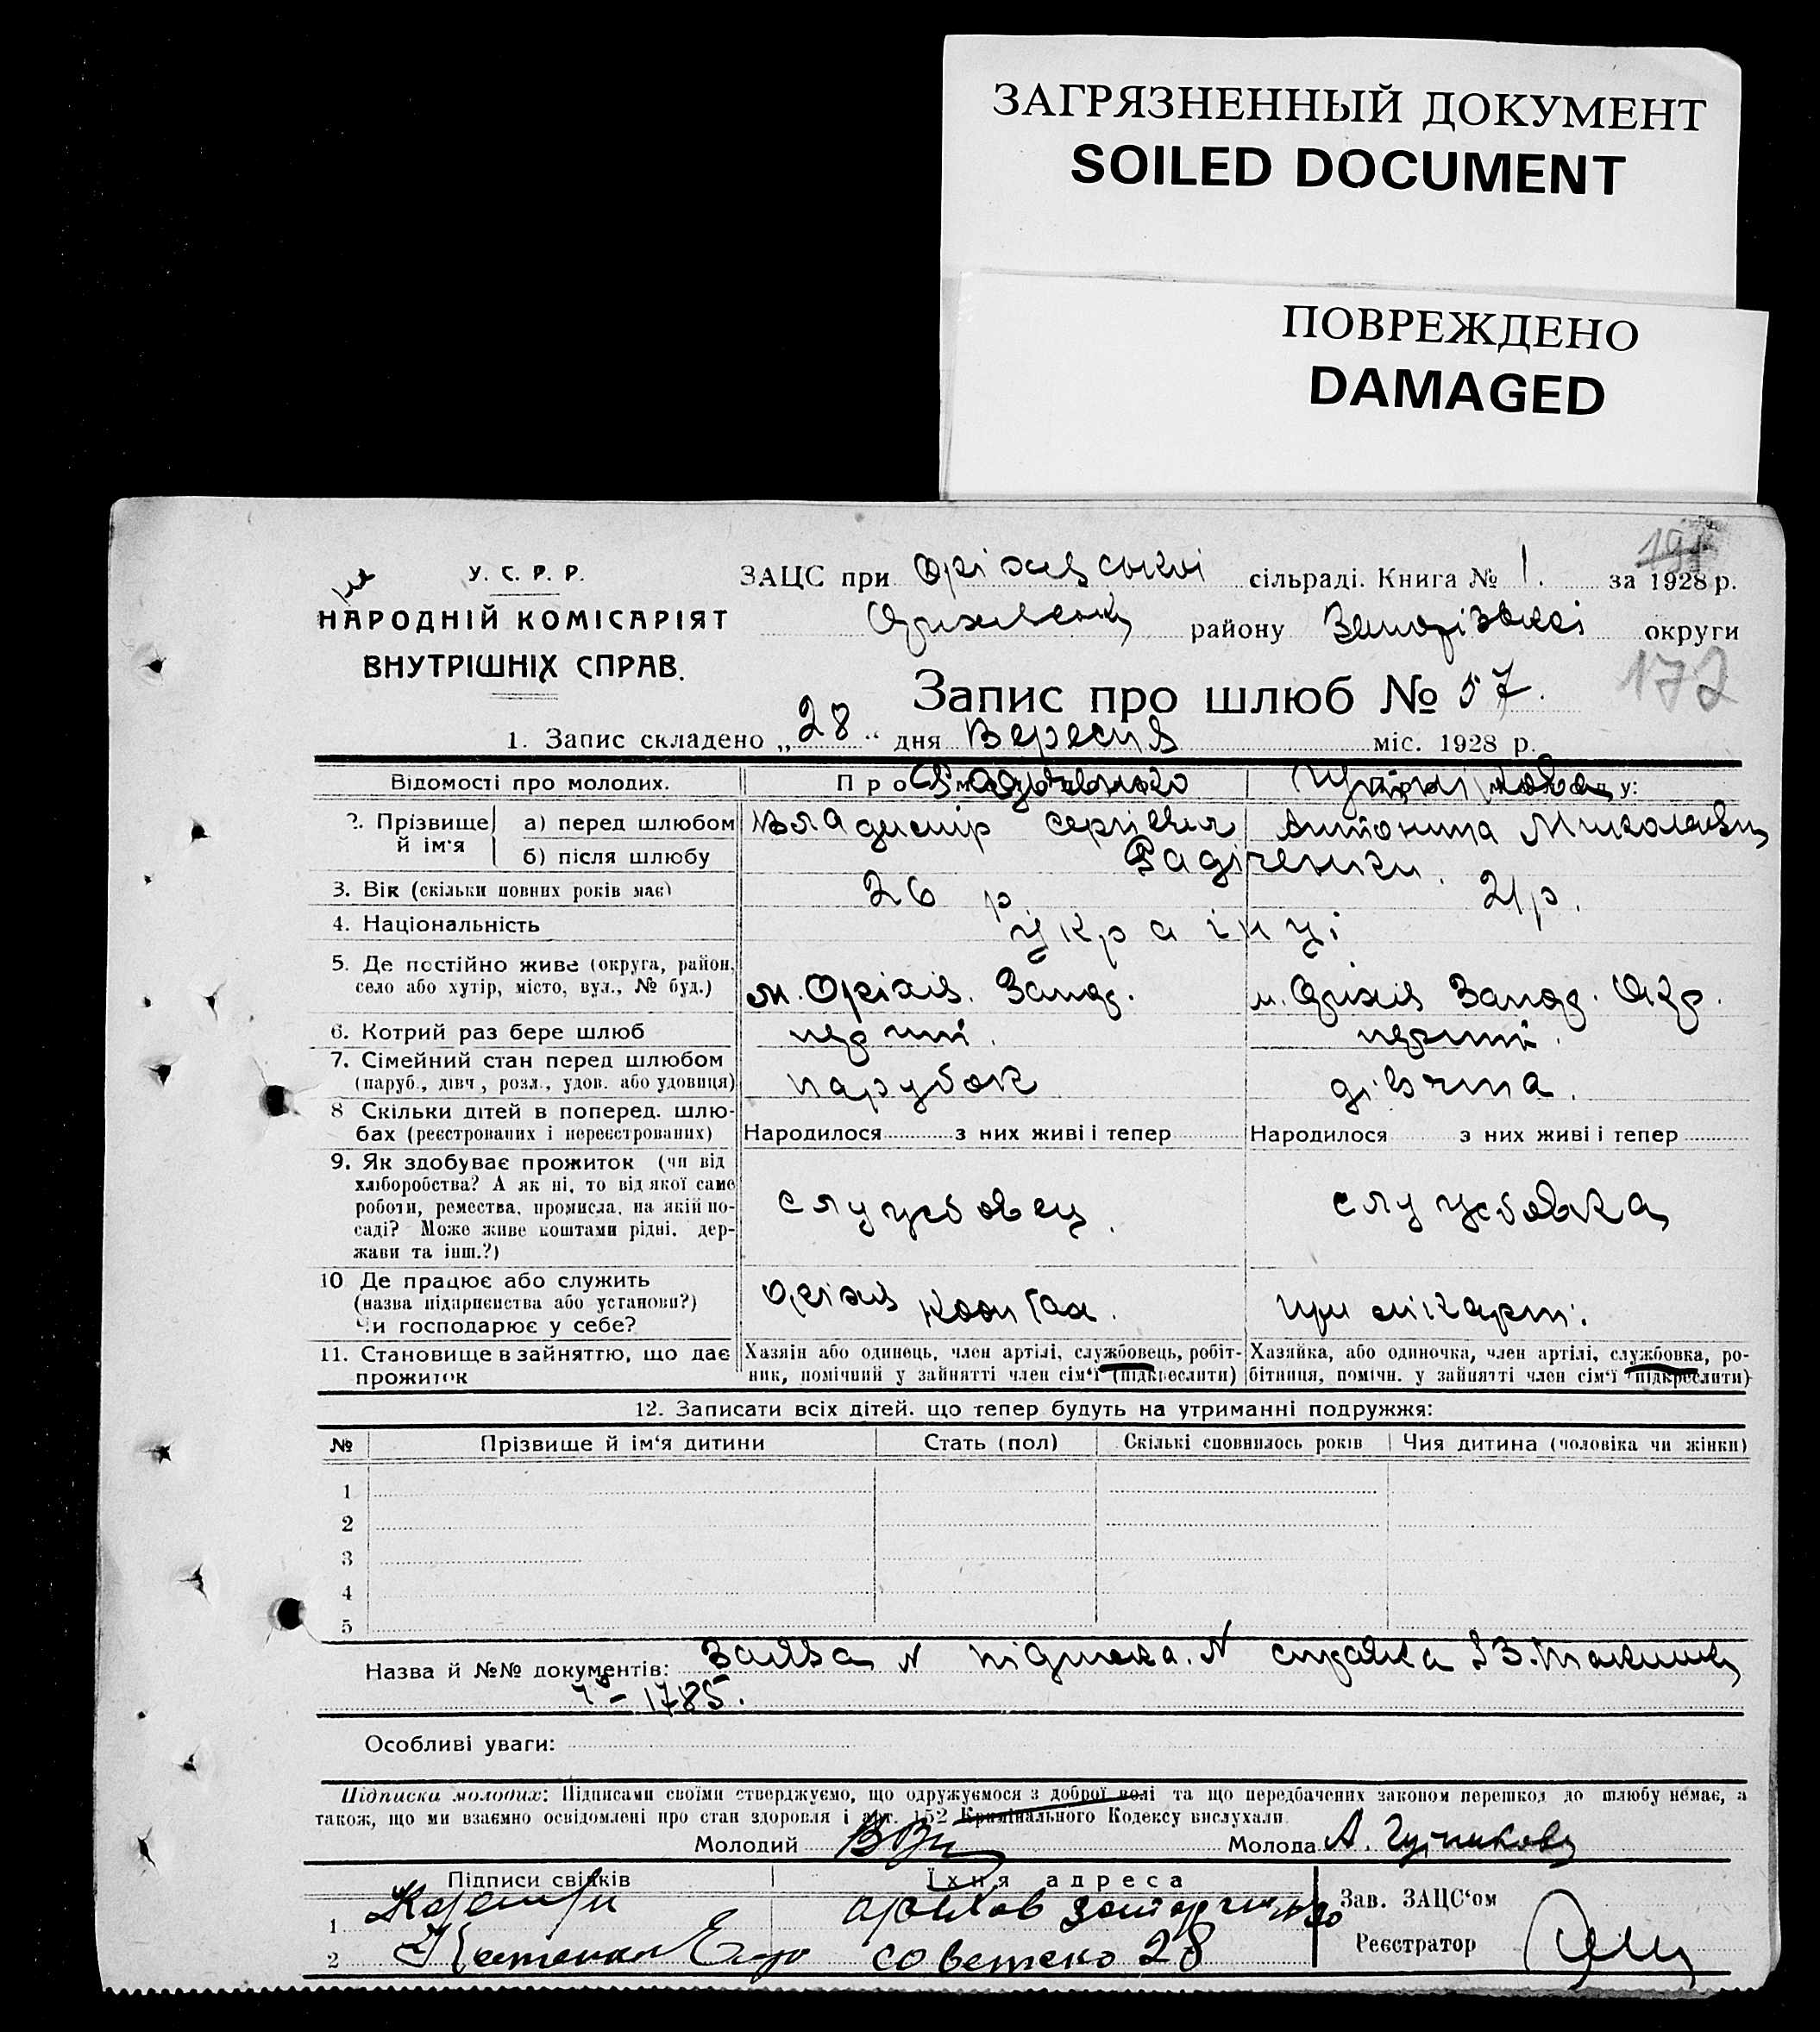 ЗАГРЯЗНЕННЫЙ ДОКУМЕНТ
SOILED DOCUMENT
ПОВРЕЖДЕНО
DAMAGED
У. С. Р. Р.
НАРОДНІЙ КОМІСАРІЯТ
ВНУТРІШНІХ СПРАВ.
ЗАЦС при Оріхівській сільраді. Книга № 1. за 1928 р.
району Запорізької округи
172
Запис про шлюб № 57.
1. Запис складено „28“ дня Вересня міс. 1928 р.
Відомості про молодих.
2. Прізвище й ім'я а) перед шлюбом Владимір Сергієвич Антонина Миколаївн
б) після шлюбу Радіченки.
3. Вік (скільки повних років має) 26 р. 21 р.
4. Національність Українці
5. Де постійно живе (округа, район, село або хутір, місто, вул., № буд.) м. Оріхів. Запор. м. Оріхів Запор. Окр.
6. Котрий раз бере шлюб перший. перший.
7. Сімейний стан перед шлюбом (паруб., дівч., розл., удов. або удовиця) парубок дівчина.
8 Скільки дітей в поперед. шлюбах (реєстрованих і нереєстрованих) Народилося з них живі і тепер Народилося з них живі і тепер
9. Як здобуває прожиток (чи від хліборобства? А як ні, то від якої саме роботи, ремества, промисла, на якій посаді? Може живе коштами рідні, держави та інш.?) службовец. службовка
10 Де працює або служить (назва підприємства або установи?) Чи господарює у себе? Оріхів при лікарні.
11. Становище в зайняттю, що дає прожиток Хазяїн або одинець, член артілі, службовець, робітник, помічний у зайнятті член сім'ї (підкреслити) Хазяйка, або одиночка, член артілі, службовка, робітниця, помічн. у зайнятті член сім'ї (підкреслити)
12. Записати всіх дітей, що тепер будуть на утриманні подружжя:
№ Прізвище й ім'я дитини Стать (пол) Скількі сповнилось років Чия дитина (чоловіка чи жінки)
1
2
3
4
5
Назва й №№ документів: Заява № підписка. № справка
1785.
Особливі уваги:
Підписка молодих: Підписами своїми стверджуємо, що одружуємося з доброї волі та що передбачених законом перешкод до шлюбу немає, а
також, що ми взаємно освідомлені про стан здоровля і арт. 152 Кримінального Кодексу вислухали
Молодий Молода А.
Підписи свідків Їхня адреса Зав. ЗАЦС'ом
1 Орѣхов
2 Советско 28 Реєстратор